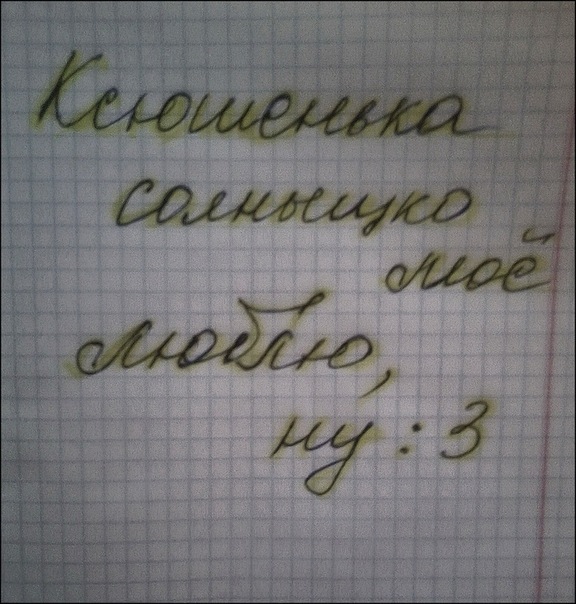 Ксюшенька
солныцко
моё
люблю,
ну :3